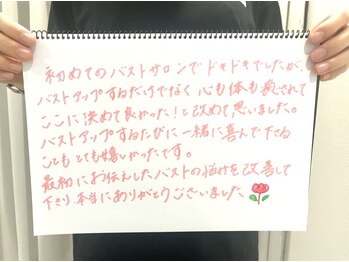 初めてのバストサロンでドキドキでしたが、
バストアップするだけでなく心も体も癒されて
ここに決めて良かった!と改めて思いました。
バストアップするたびに一緒に喜んで下さる
こともとても嬉しかったです。
最初にお伝えしたバストの悩みを改善して
下さり、本当にありがとうございました。